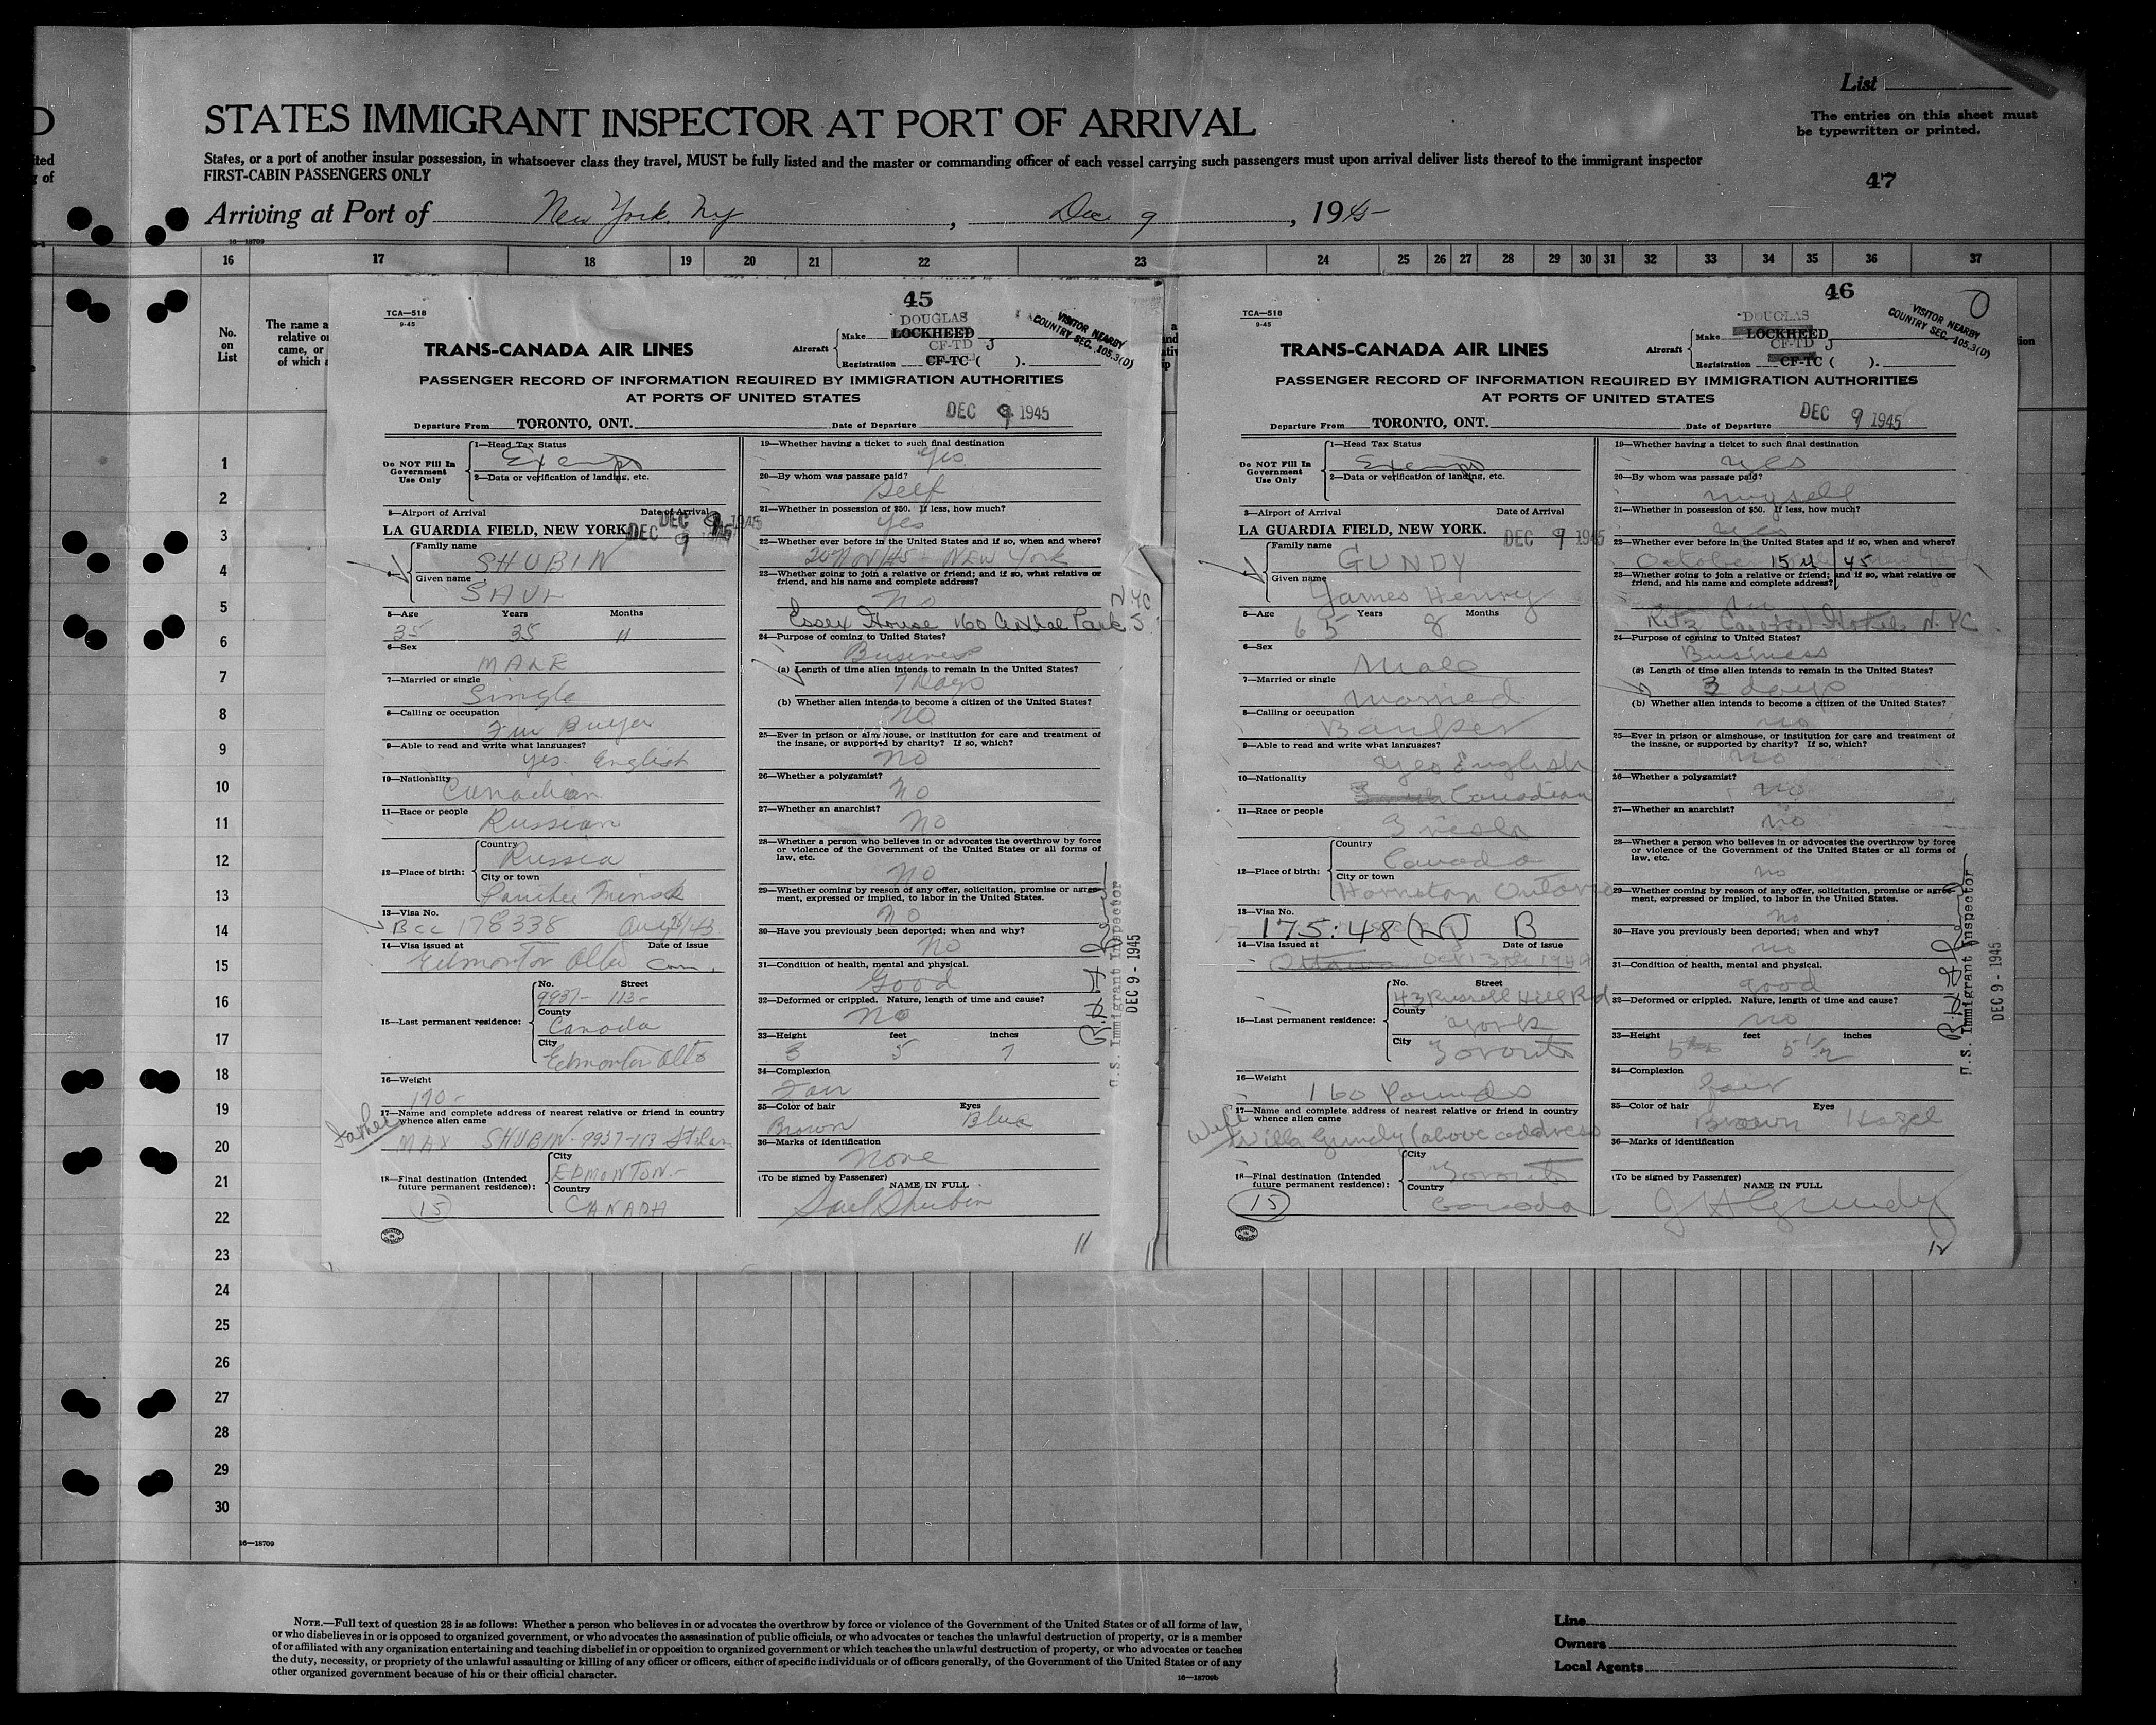 List
STATES IMMIGRANT INSPECTOR AT PORT OF ARRIVAL
The entries on this sheet must
be typewritten or printed.
States, or a port of another insular possession, in whatsoever class they travel, MUST be fully listed and the master or commanding officer of each vessel carrying such passengers must upon arrival deliver lists thereof to the immigrant inspector
FIRST-CABIN PASSENGERS ONLY
47
Arriving at Port of New York, Ny, Dec 9, 1945
16—18709
16 17 18 19 20 21 22 23 24 25 26 27 28 29 30 31 32 33 34 35 36 37
No.
on
List
The name a
relative o
came, or
of which a
1
2
3
4
5
6
7
8
9
10
11
12
13
14
15
16
17
18
19
20
21
22
23
24
25
26
27
28
29
30
45
TCA—518
9-45
TRANS-CANADA AIR LINES
Aircraft
Make DOUGLAS LOCKHEED
CF-TD J
Registration CF-TC ( ).
VISITOR NEARBY
COUNTRY SEC. 105.3(D)
PASSENGER RECORD OF INFORMATION REQUIRED BY IMMIGRATION AUTHORITIES
AT PORTS OF UNITED STATES
Departure From TORONTO, ONT. Date of Departure DEC 9 1945
Do NOT Fill In
Government
Use Only
1—Head Tax Status
Exempt
2—Data or verification of landing, etc.
3—Airport of Arrival Date of Arrival
LA GUARDIA FIELD, NEW YORK. DEC 9 1945
Family name SHUBIN
Given name SAUL
5—Age Years Months
35 35 11
6—Sex
MALE
7—Married or single
Single
8—Calling or occupation
Fur Buyer
9—Able to read and write what languages?
Yes. English
10—Nationality
Canadian
11—Race or people
Russian
12—Place of birth:
Country
Russia
City or town
Minsk
13—Visa No.
Bcc 178338
14—Visa issued at Date of issue
Edmonton Alta Can.
15—Last permanent residence:
No. Street
9937- 113-
County
Canada
City
Edmonton Alta
16—Weight
170-
17—Name and complete address of nearest relative or friend in country
whence alien came
Father
MAX SHUBIN. 9937-113 St
18—Final destination (Intended
future permanent residence):
City
EDMONTON.-
Country
CANADA
15
19—Whether having a ticket to such final destination
Yes
20—By whom was passage paid?
Self
21—Whether in possession of $50. If less, how much?
Yes
22—Whether ever before in the United States and if so, when and where?
20 Nov/45 - NEW York
23—Whether going to join a relative or friend; and if so, what relative or
friend, and his name and complete address?
No
Essex House 160 Central Park S. NYC
24—Purpose of coming to United States?
Business
(a) Length of time alien intends to remain in the United States?
7 Days
(b) Whether alien intends to become a citizen of the United States?
No
25—Ever in prison or almshouse, or institution for care and treatment of
the insane, or supported by charity? If so, which?
No
26—Whether a polygamist?
No
27—Whether an anarchist?
No
28—Whether a person who believes in or advocates the overthrow by force
or violence of the Government of the United States or all forms of
law, etc.
No
29—Whether coming by reason of any offer, solicitation, promise or agree-
ment, expressed or implied, to labor in the United States.
No
30—Have you previously been deported; when and why?
No
31—Condition of health, mental and physical.
Good
32—Deformed or crippled. Nature, length of time and cause?
No
33—Height feet inches
5 7
34—Complexion
Fair
35—Color of hair Eyes
Brown Blue
36—Marks of identification
None
(To be signed by Passenger) NAME IN FULL
Saul Shubin
11
U.S. Immigrant Inspector
DEC 9 - 1945
46
TCA—518
9-45
TRANS-CANADA AIR LINES
Aircraft
Make DOUGLAS LOCKHEED
CF-TD J
Registration CF-TC ( ).
VISITOR NEARBY
COUNTRY SEC. 105.3(D)
PASSENGER RECORD OF INFORMATION REQUIRED BY IMMIGRATION AUTHORITIES
AT PORTS OF UNITED STATES
Departure From TORONTO, ONT. Date of Departure DEC 9 1945
Do NOT Fill In
Government
Use Only
1—Head Tax Status
Exempt
2—Data or verification of landing, etc.
3—Airport of Arrival Date of Arrival
LA GUARDIA FIELD, NEW YORK. DEC 9 1945
Family name GUNDY
Given name James Henry
5—Age Years Months
65 8
6—Sex
Male
7—Married or single
Married
8—Calling or occupation
Banker
9—Able to read and write what languages?
Yes English
10—Nationality
Canadian
11—Race or people
Irish
12—Place of birth:
Country
Canada
City or town
Harriston Ontario
13—Visa No.
175:48 B
14—Visa issued at Date of issue
Ottawa
15—Last permanent residence:
No. Street
43 Russell Hill Rd
County
York
City
Toronto
16—Weight
160 Pounds
17—Name and complete address of nearest relative or friend in country
whence alien came
Wife
Willa Gundy (above address
18—Final destination (Intended
future permanent residence):
City
Toronto
Country
Canada
15
19—Whether having a ticket to such final destination
yes
20—By whom was passage paid?
myself
21—Whether in possession of $50. If less, how much?
yes
22—Whether ever before in the United States and if so, when and where?
October 15 45
23—Whether going to join a relative or friend; and if so, what relative or
friend, and his name and complete address?
no
Ritz Carlton Hotel N.YC.
24—Purpose of coming to United States?
Business
(a) Length of time alien intends to remain in the United States?
3 days
(b) Whether alien intends to become a citizen of the United States?
no
25—Ever in prison or almshouse, or institution for care and treatment of
the insane, or supported by charity? If so, which?
no
26—Whether a polygamist?
no
27—Whether an anarchist?
no
28—Whether a person who believes in or advocates the overthrow by force
or violence of the Government of the United States or all forms of
law, etc.
no
29—Whether coming by reason of any offer, solicitation, promise or agree-
ment, expressed or implied, to labor in the United States.
no
30—Have you previously been deported; when and why?
no
31—Condition of health, mental and physical.
good
32—Deformed or crippled. Nature, length of time and cause?
no
33—Height feet inches
5 5 1/2
34—Complexion
fair
35—Color of hair Eyes
Brown Hazel
36—Marks of identification
(To be signed by Passenger) NAME IN FULL
J H Gundy
12
U.S. Immigrant Inspector
DEC 9 - 1945
16—18709
NOTE.—Full text of question 28 is as follows: Whether a person who believes in or advocates the overthrow by force or violence of the Government of the United States or of all forms of law,
or who disbelieves in or is opposed to organized government, or who advocates the assassination of public officials, or who advocates or teaches the unlawful destruction of property, or is a member
of or affiliated with any organization entertaining and teaching disbelief in or opposition to organized government or which teaches the unlawful destruction of property, or who advocates or teaches
the duty, necessity, or propriety of the unlawful assaulting or killing of any officer or officers, either of specific individuals or of officers generally, of the Government of the United States or of any
other organized government because of his or their official character.
16—18709b
Line
Owners
Local Agents